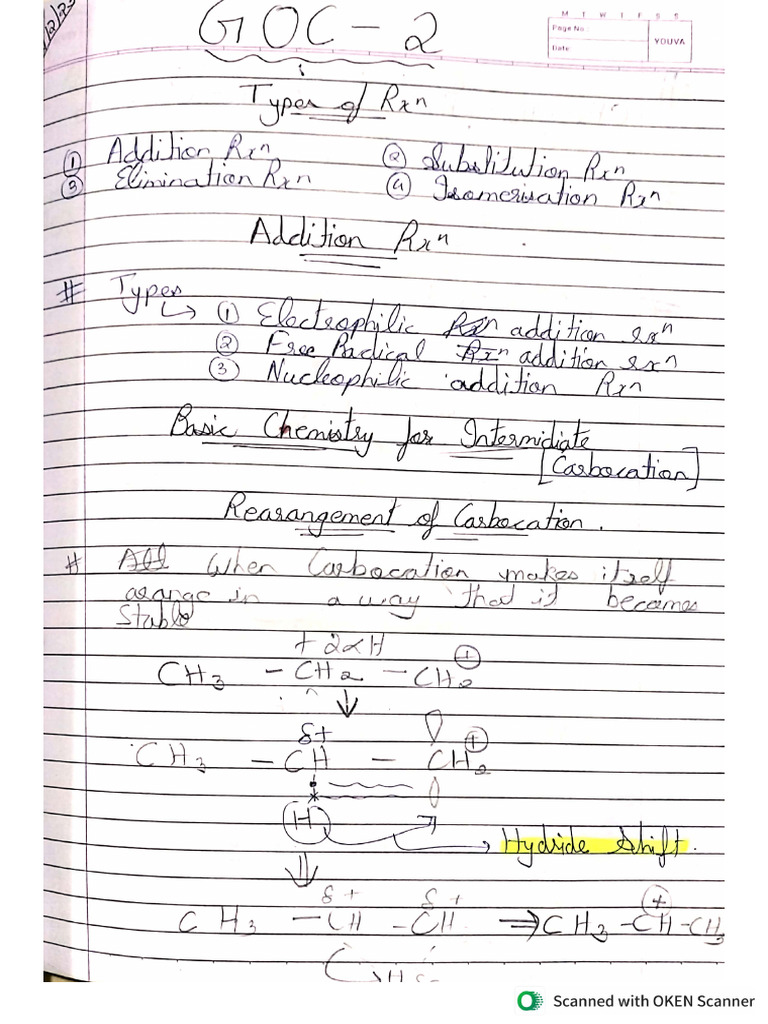 GOC-2
M T W T F S S
Page No.:
Date:
YOUVA
Types of Rxⁿ
① Addition Rxⁿ ② Substitution Rxⁿ
③ Elimination Rxⁿ ④ Isomerisation Rxⁿ
Addition Rxⁿ
# Types
↳ ① Electrophilic addition rxⁿ
② Free Radical addition rxⁿ
③ Nucleophilic addition Rxⁿ
Basic Chemistry for Intermidiate
[Carbocation]
Rearangement of Carbocation.
# When Carbocation makes itself
arange in a way that it becomes
Stable
+ 2αH
CH₃ - CH₂ - CH₂ ⊕
↓
δ+
CH₃ - CH - CH₂ ⊕
H → Hydride Shift.
⇓
δ+ δ+ ⊕
CH₃ - CH - CH ⇒ CH₃ - CH - CH₃
Scanned with OKEN Scanner